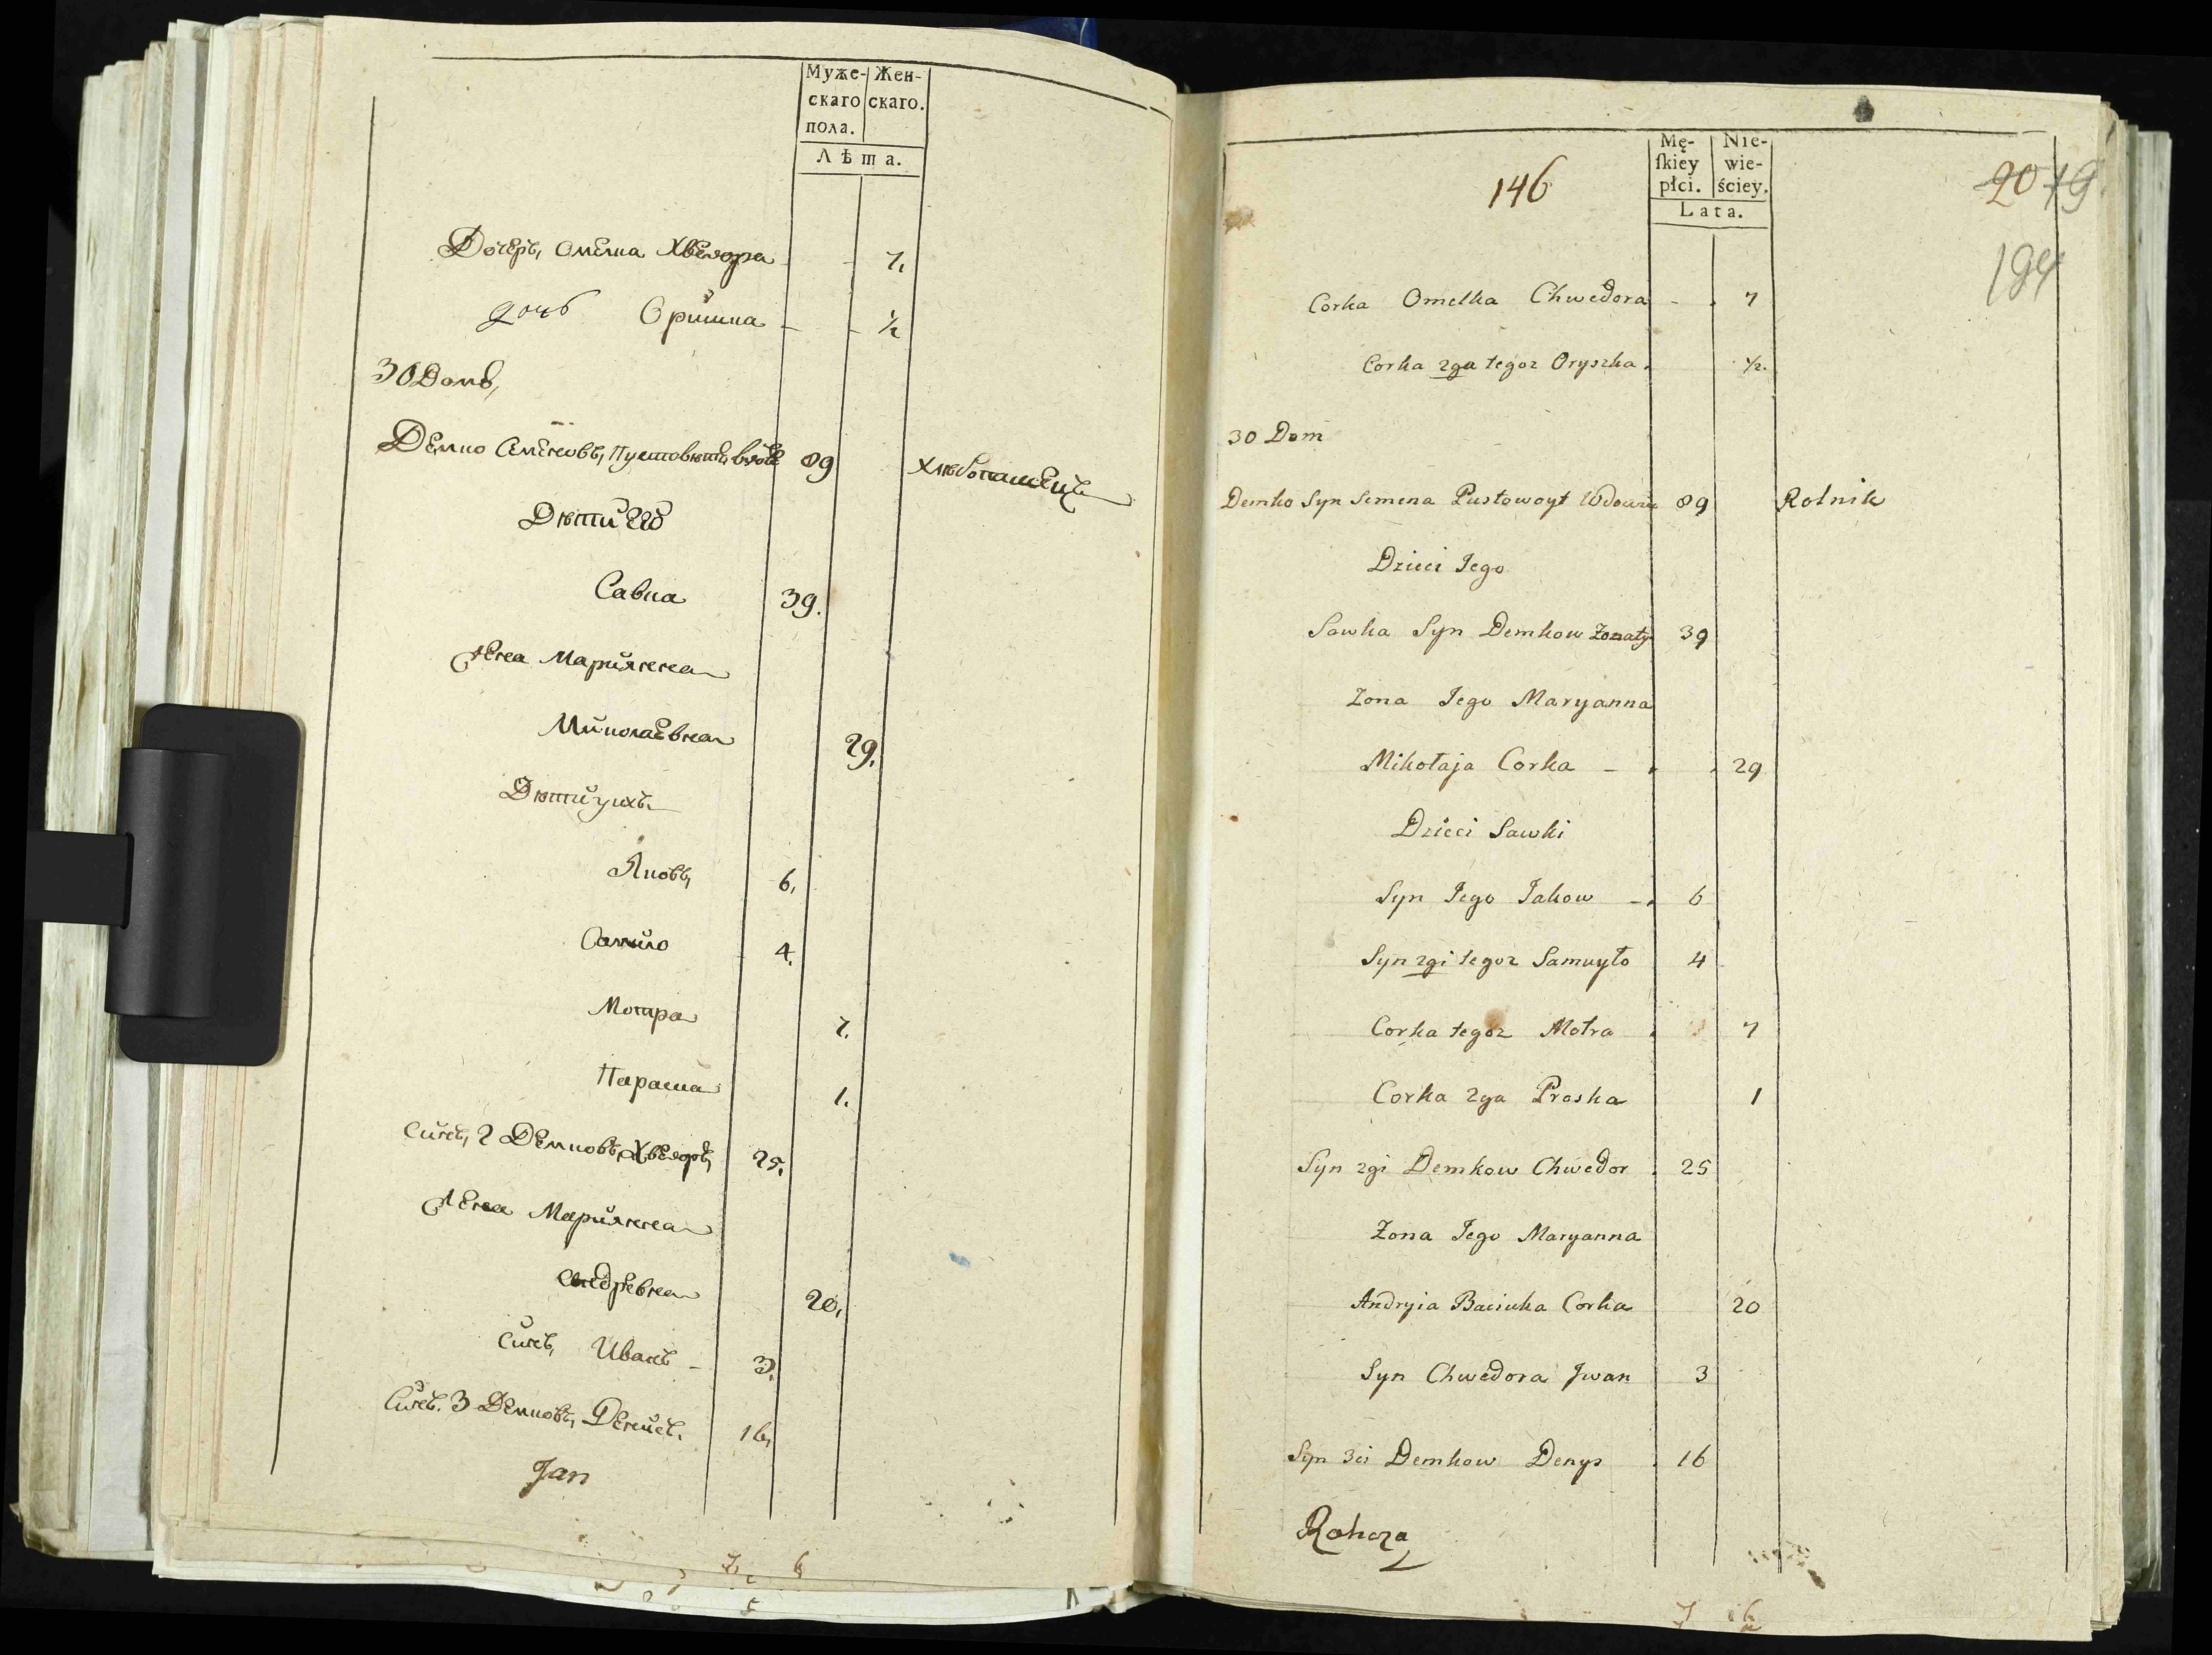 Муже- Жен-
скаго скаго.
пола.
Лѣта.
Дочерь, Омелка Хведора - - 7.
дочь Оришка - - 1/2
30 Домъ,
Демко Семеновъ, Пустовойтъ, вдовъ 89 хлѣбопашецъ
Дѣти Его
Савка 39.
Жена Марианна
Миколаевна 29.
Дѣти ихъ
Яковъ, 6,
Самило 4.
Мотра 7.
Параска 1.
Синъ, 2 Демковъ, Хведоръ, 25.
Жена Марианна
Андреевна 20,
Синъ, Иванъ - 3.
Синъ. 3 Демковъ, Денисъ. 16,
Jan
146
Mę- Nie-
ſkiey wie-
płci. ściey.
Lata.
20 19.
194
Corka Omelka Chwedora - . 7
Corka 2ga tegoz Oryszka. 1/2.
30 Dom
Demko Syn Semena Pustowoyt Wdowiec 89 Rolnik
Dzieci Jego
Sawka Syn Demkow Zonaty 39
Zona Jego Maryanna
Mikołaja Corka - . . 29
Dzieci Sawki
Syn Jego Jakow -. 6
Syn 2gi tegoz Samuyło 4
Corka tegoz Motra . 7
Corka 2ga Proska 1
Syn 2gi Demkow Chwedor . 25
Zona Jego Maryanna
Andryia Baciuka Corka 20
Syn Chwedora Jwan 3
Syn 3ci Demkow Denys . 16
Rohoza